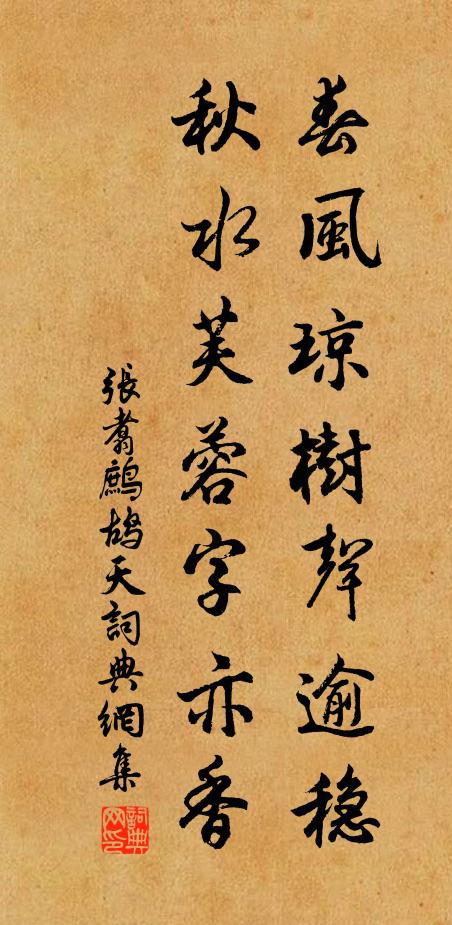 春風琼樹聲逾穩
秋水芙蓉字亦香
張翥鷓鴣天詞典網集
詞典
网印